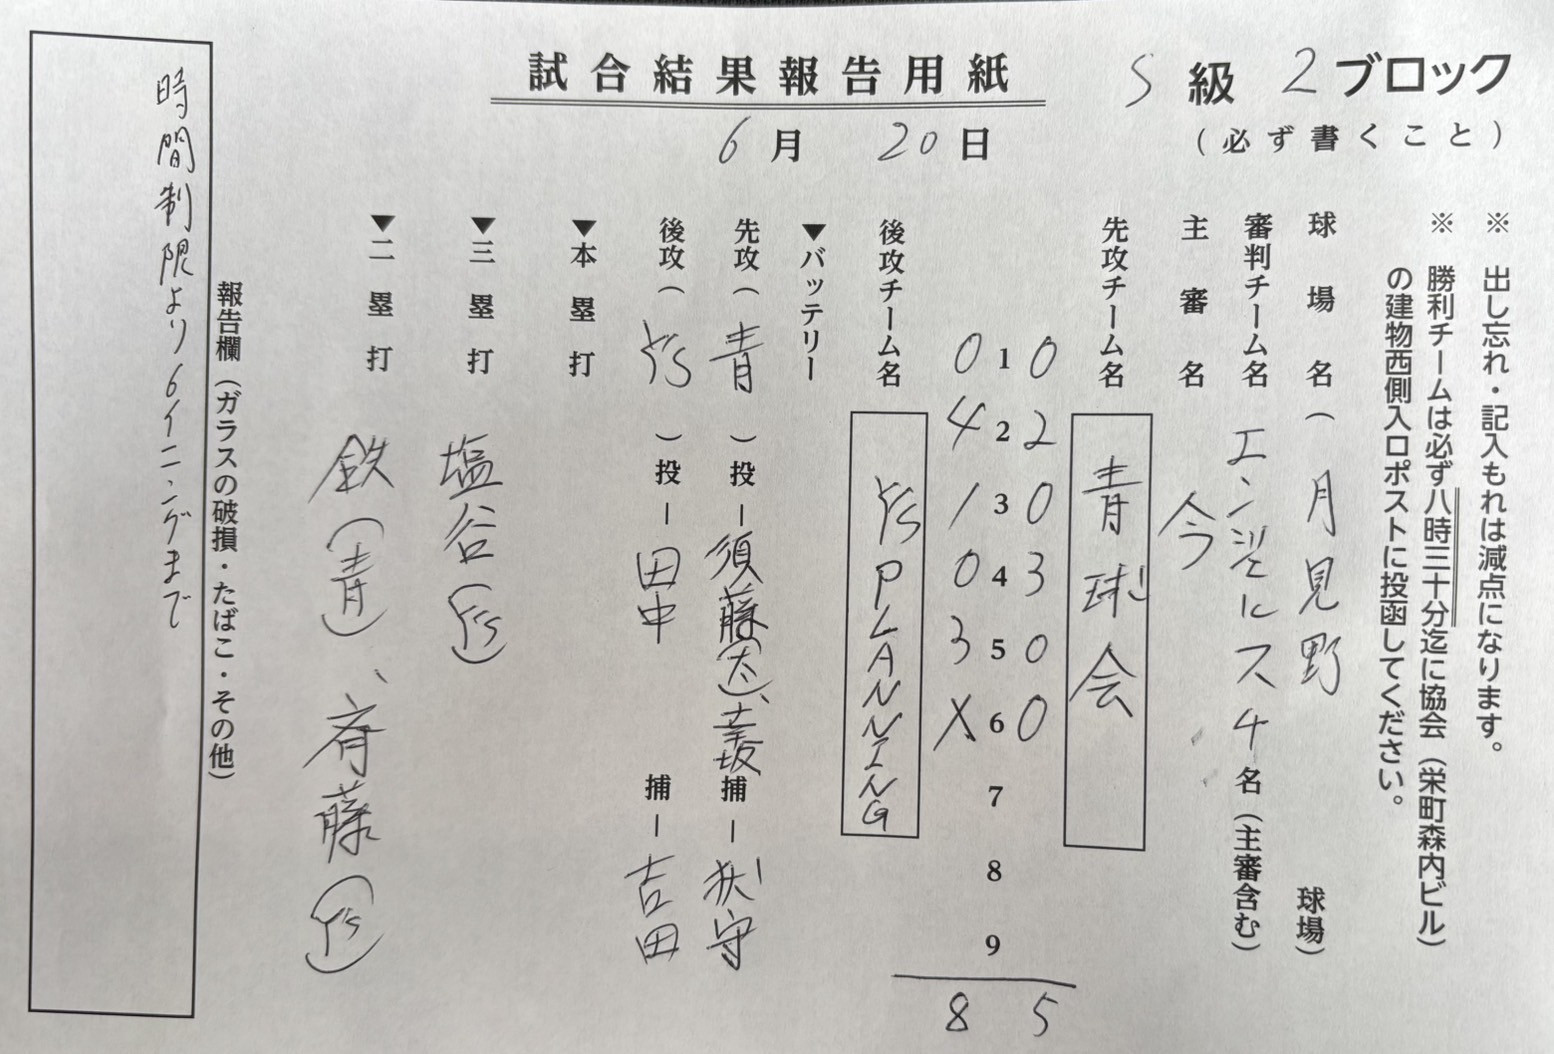 試合結果報告用紙
S級 2ブロック
(必ず書くこと)
6月 20日
※ 出し忘れ・記入もれは減点になります。
※ 勝利チームは必ず八時三十分迄に協会(栄町森内ビル)
の建物西側入口ポストに投函してください。
球場名(月見野 球場)
審判チーム名 エンジェルス 4名(主審含む)
主審名 今
先攻チーム名 青球会
0 2 0 3 0 0 5
1 2 3 4 5 6 7 8 9
0 4 1 0 3 X 8
後攻チーム名 Y'S PLANNING
▼バッテリー
先攻(青)投―須藤(大)、 捕―狄守
後攻(Y'S)投―田中 捕―吉田
▼本塁打
▼三塁打 塩谷(Y'S)
▼二塁打 鉄(青)、斉藤(Y'S)
報告欄(ガラスの破損・たばこ・その他)
時間制限より6イニングまで